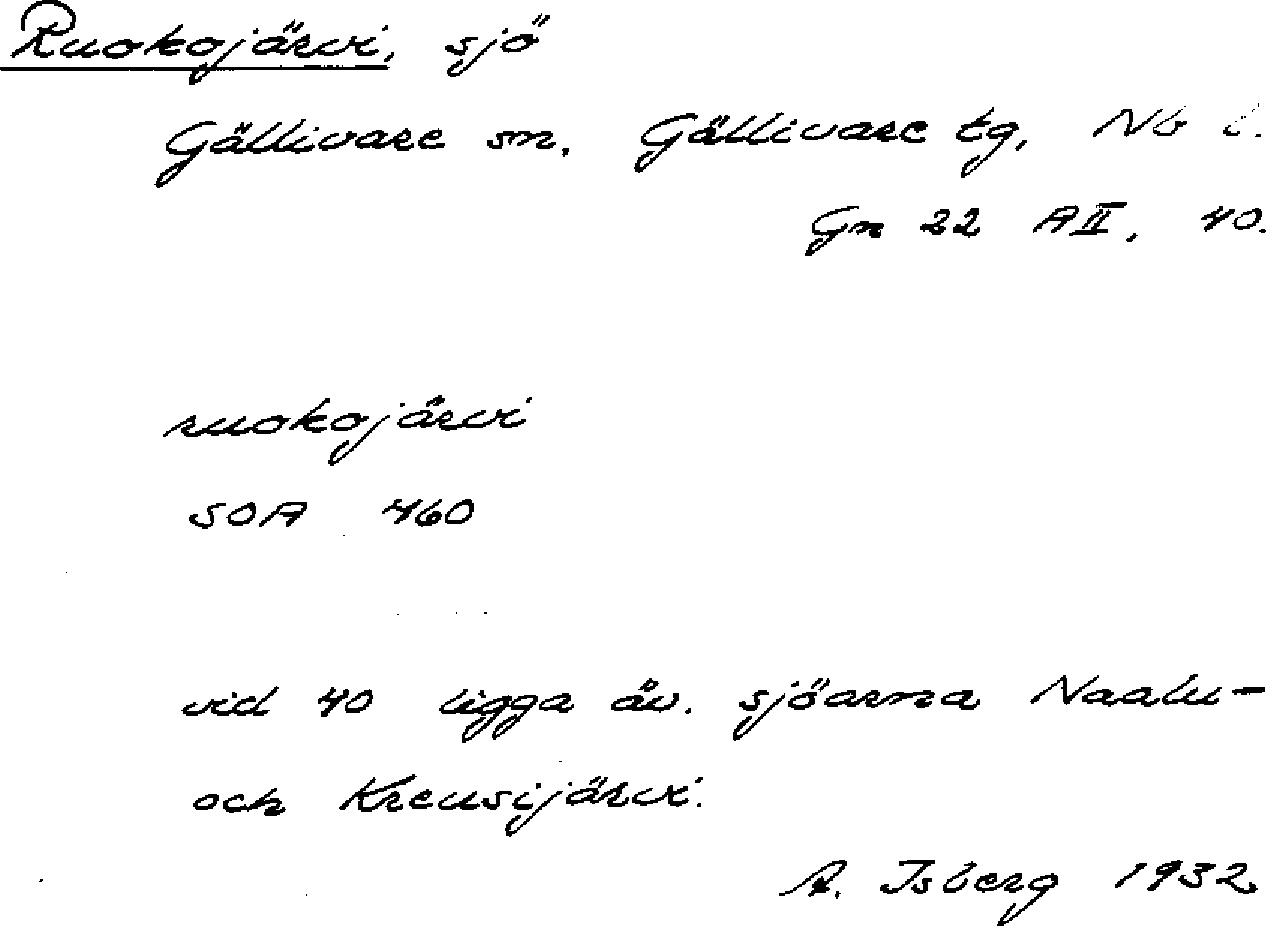 Ruokojärvi, sjö
Gällivare sn, Gällivare tg, Nb l.
Gn 22 AII, 40.
ruokojärvi
SOA 460
vid 40 ligga äv. sjöarna Naalu-
och Kreusijärvi.
A. Isberg 1932